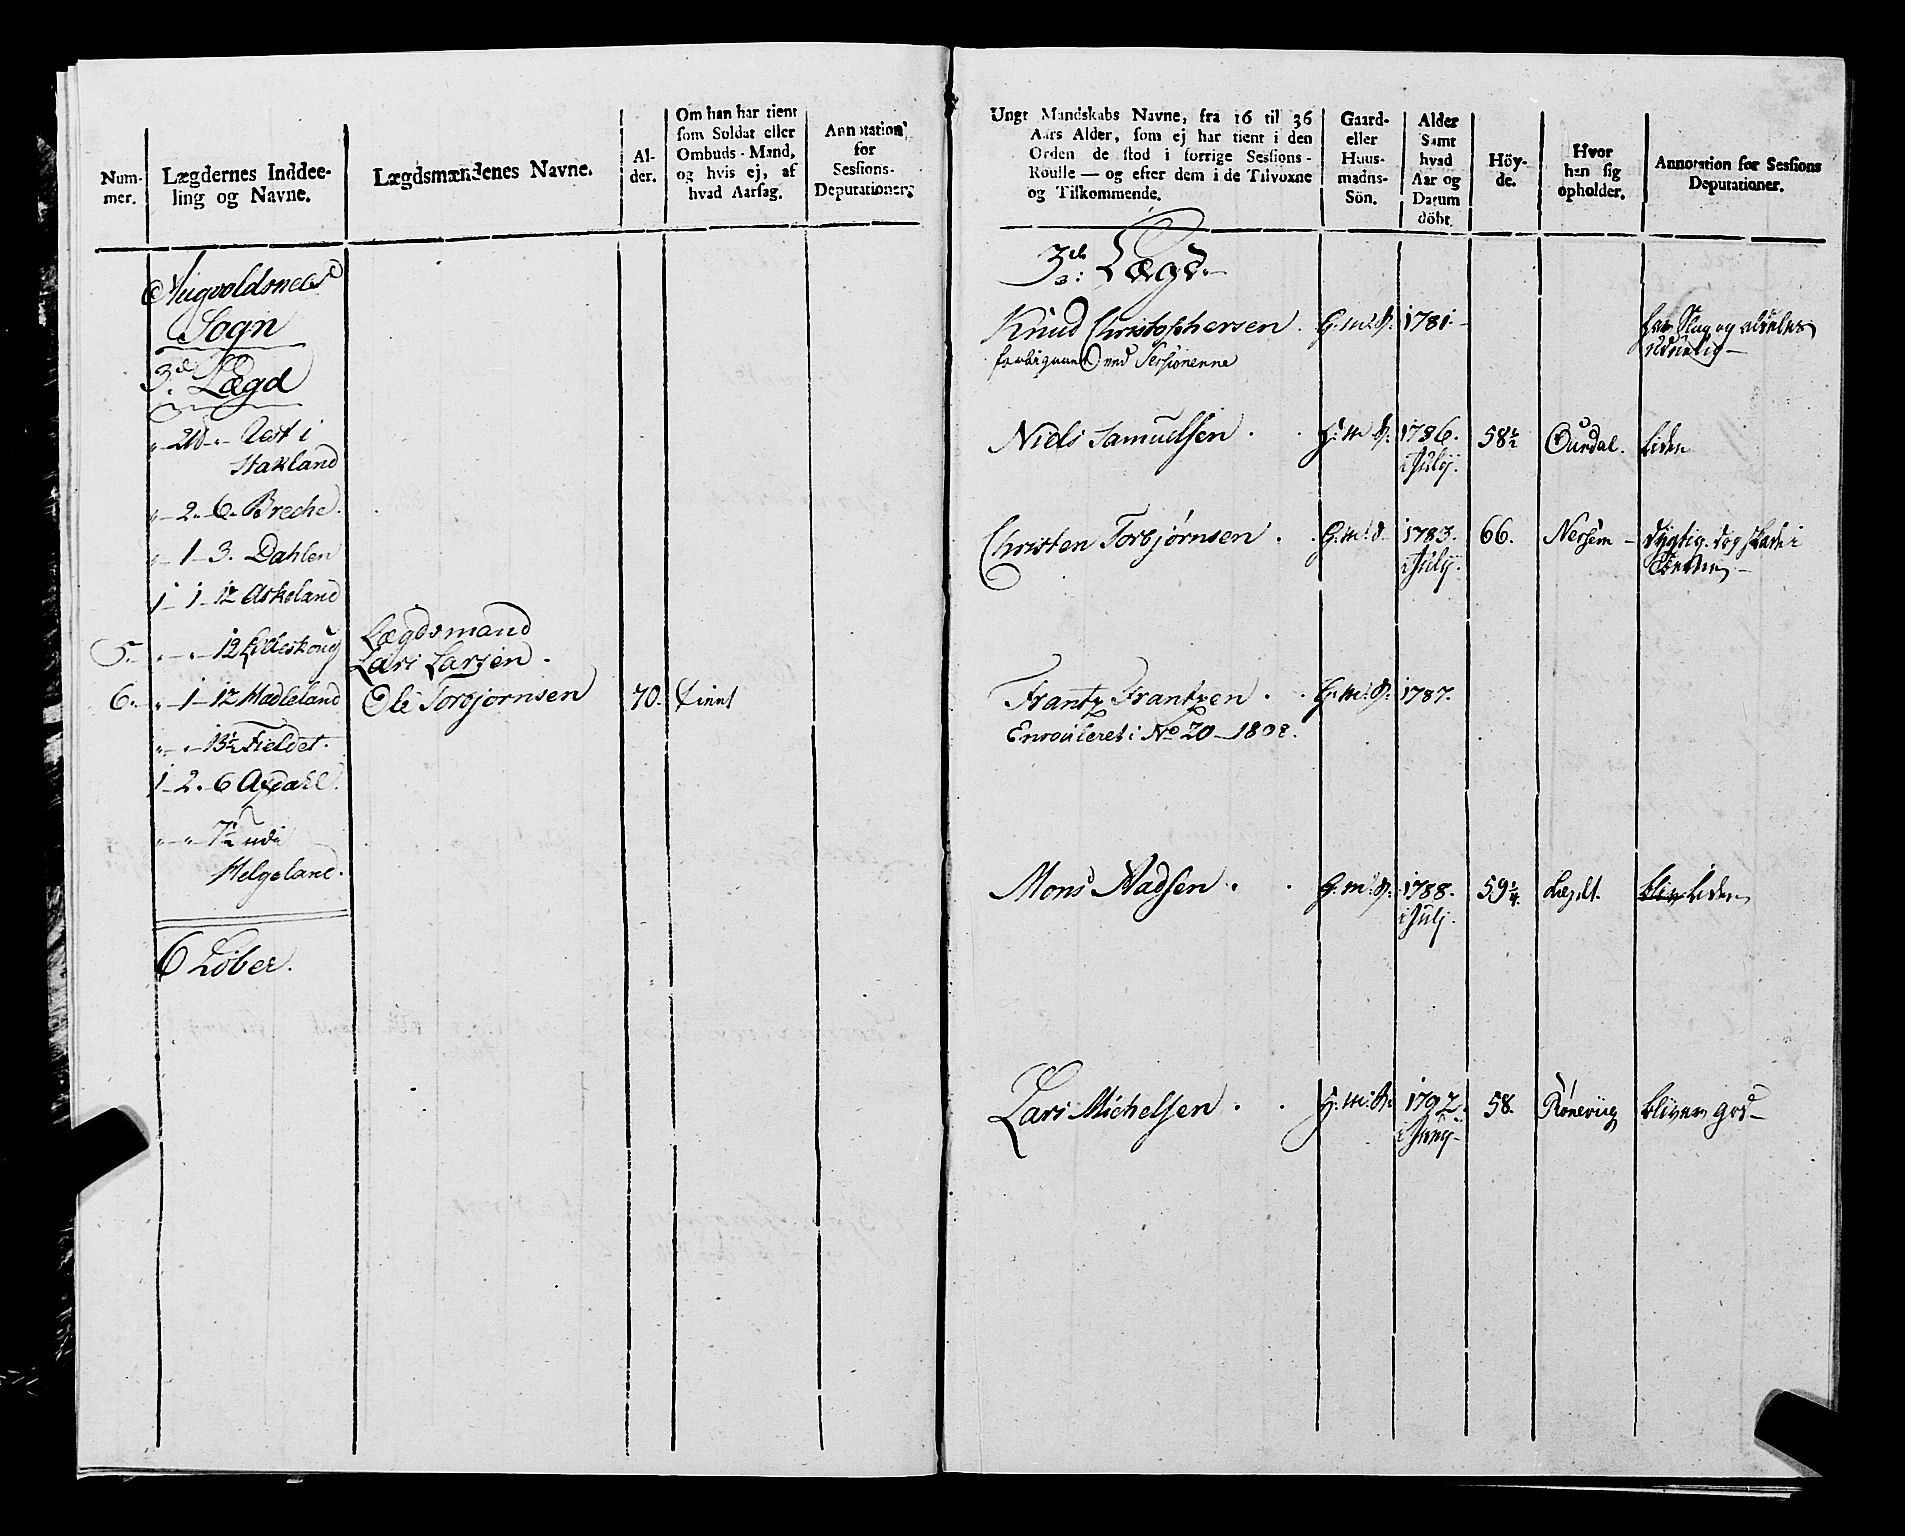 Num-
mer.
Lægdernes Inddee-
ling og Navne.
Lægdsmændenes Navne.
Al-
der.
Om han har tient
som Soldat eller
Ombuds-Mand,
og hvis ej, af
hvad Aarsag.
Annotation
for
Sessions-
Deputationer.
Augvoldsnes
Sogn
3d. Lægd
Aast i
Stakland
2. 6. Breche.
1 - 3. Dahlen
1 - 1 - 12 Askeland
5. 12 Lægdsmand
Lars Larsen.
6. 1 - 12 Hadleland Ole Torbjørnsen 70. tient
13½ Fieldet.
1 - 2. 6
7½ udi
Helgeland.
6 Löber.
Ungt Mandskabs Navne, fra 16 til 36
Aars Alder, som ej har tient i den
Orden de stod i forrige Sessions-
Roulle — og efter dem i de Tilvoxne
og Tilkommende.
Gaard-
eller
Huus-
mands-
Sön.
Alder
Samt
hvad
Aar og
Datum
döbt.
Höy-
de.
Hvor
han sig
opholder.
Annotation for Sessions
Deputationer.
3de Lægd.
Knud Christophersen. G. m. S. 1781.
ved Sessionerne
Niels Samuelsen. H. m. S. 1786. 58½ liden
i Julij.
Christen Torbjørnsen. G. m. S. 1783. 66. dygtig. dog skade i
i Julij.
Frantz Frantzen. G. m. S. 1787.
Enroulleret i No 20 - 1808.
Mons Madsen. G. m. S. 1788. 59¼ Lægdt. liden
i Julj.
Lars Michelsen. H. m. S. 1792. 58. Röneviig bliver god